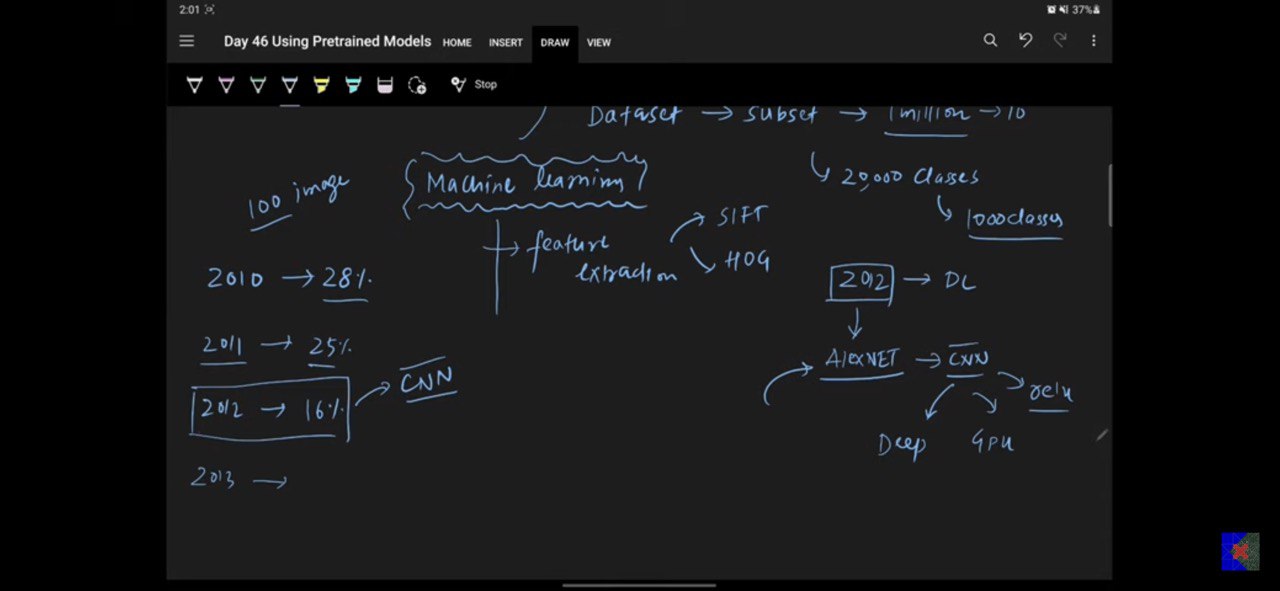 2:01
37%
Day 46 Using Pretrained Models HOME INSERT DRAW VIEW
Stop
Dataset → subset → 1 million → 10
↳ 20,000 classes
↳ 1000 classes
100 image
Machine learning
→ feature extraction
SIFT
HOG
2010 → 28%
2011 → 25%
2012 → 16% → CNN
2013 →
2012 → DL
↓
AlexNET → CNN
relu
Deep
GPU